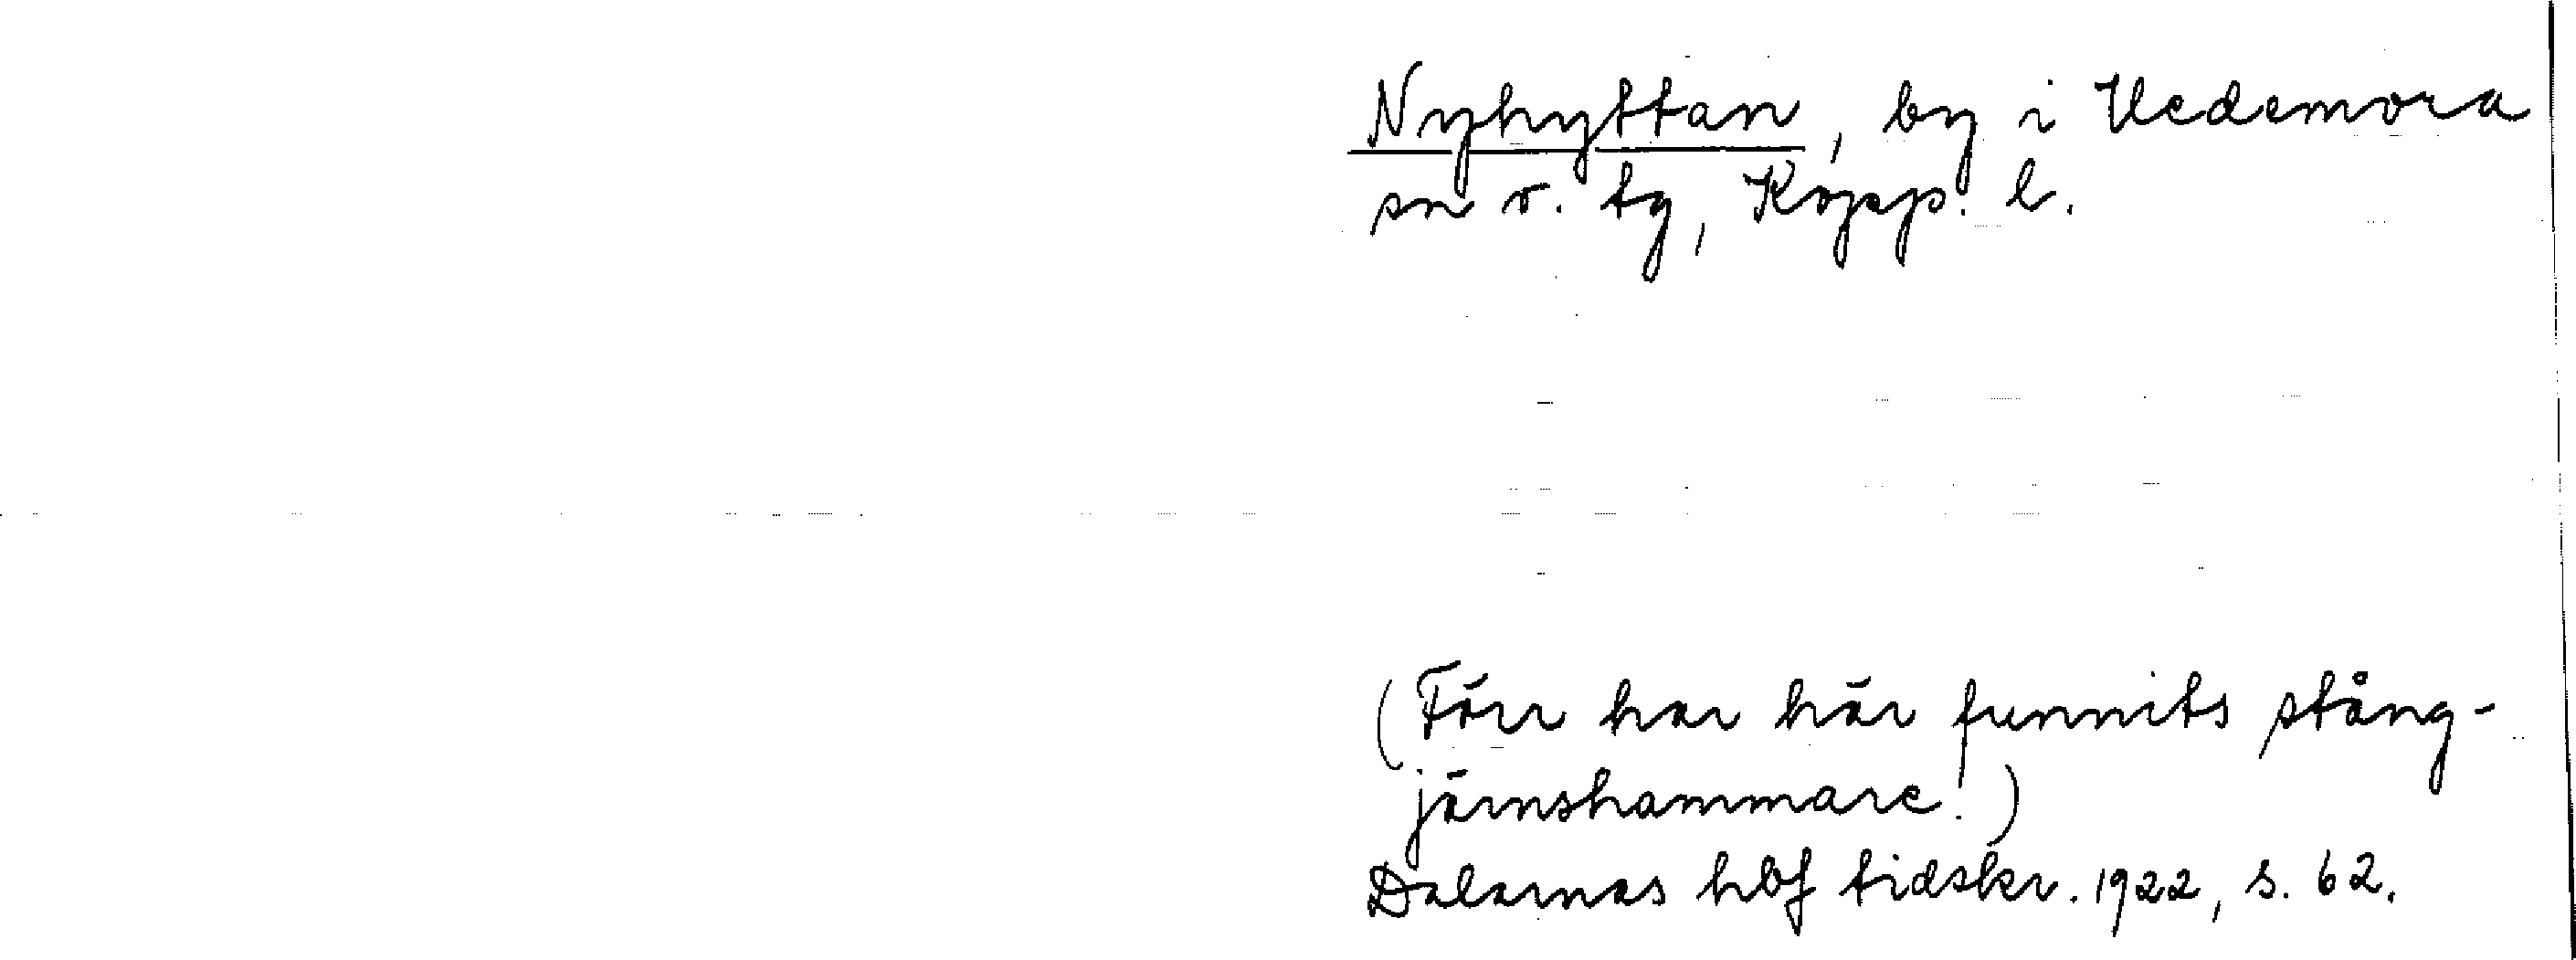 Nyhyttan, by i Hedemora
sn o. tg, Kopp. l.
(Förr har här funnits stång-
järnshammare.)
Dalarnas hbf tidskr. 1922, s. 62.